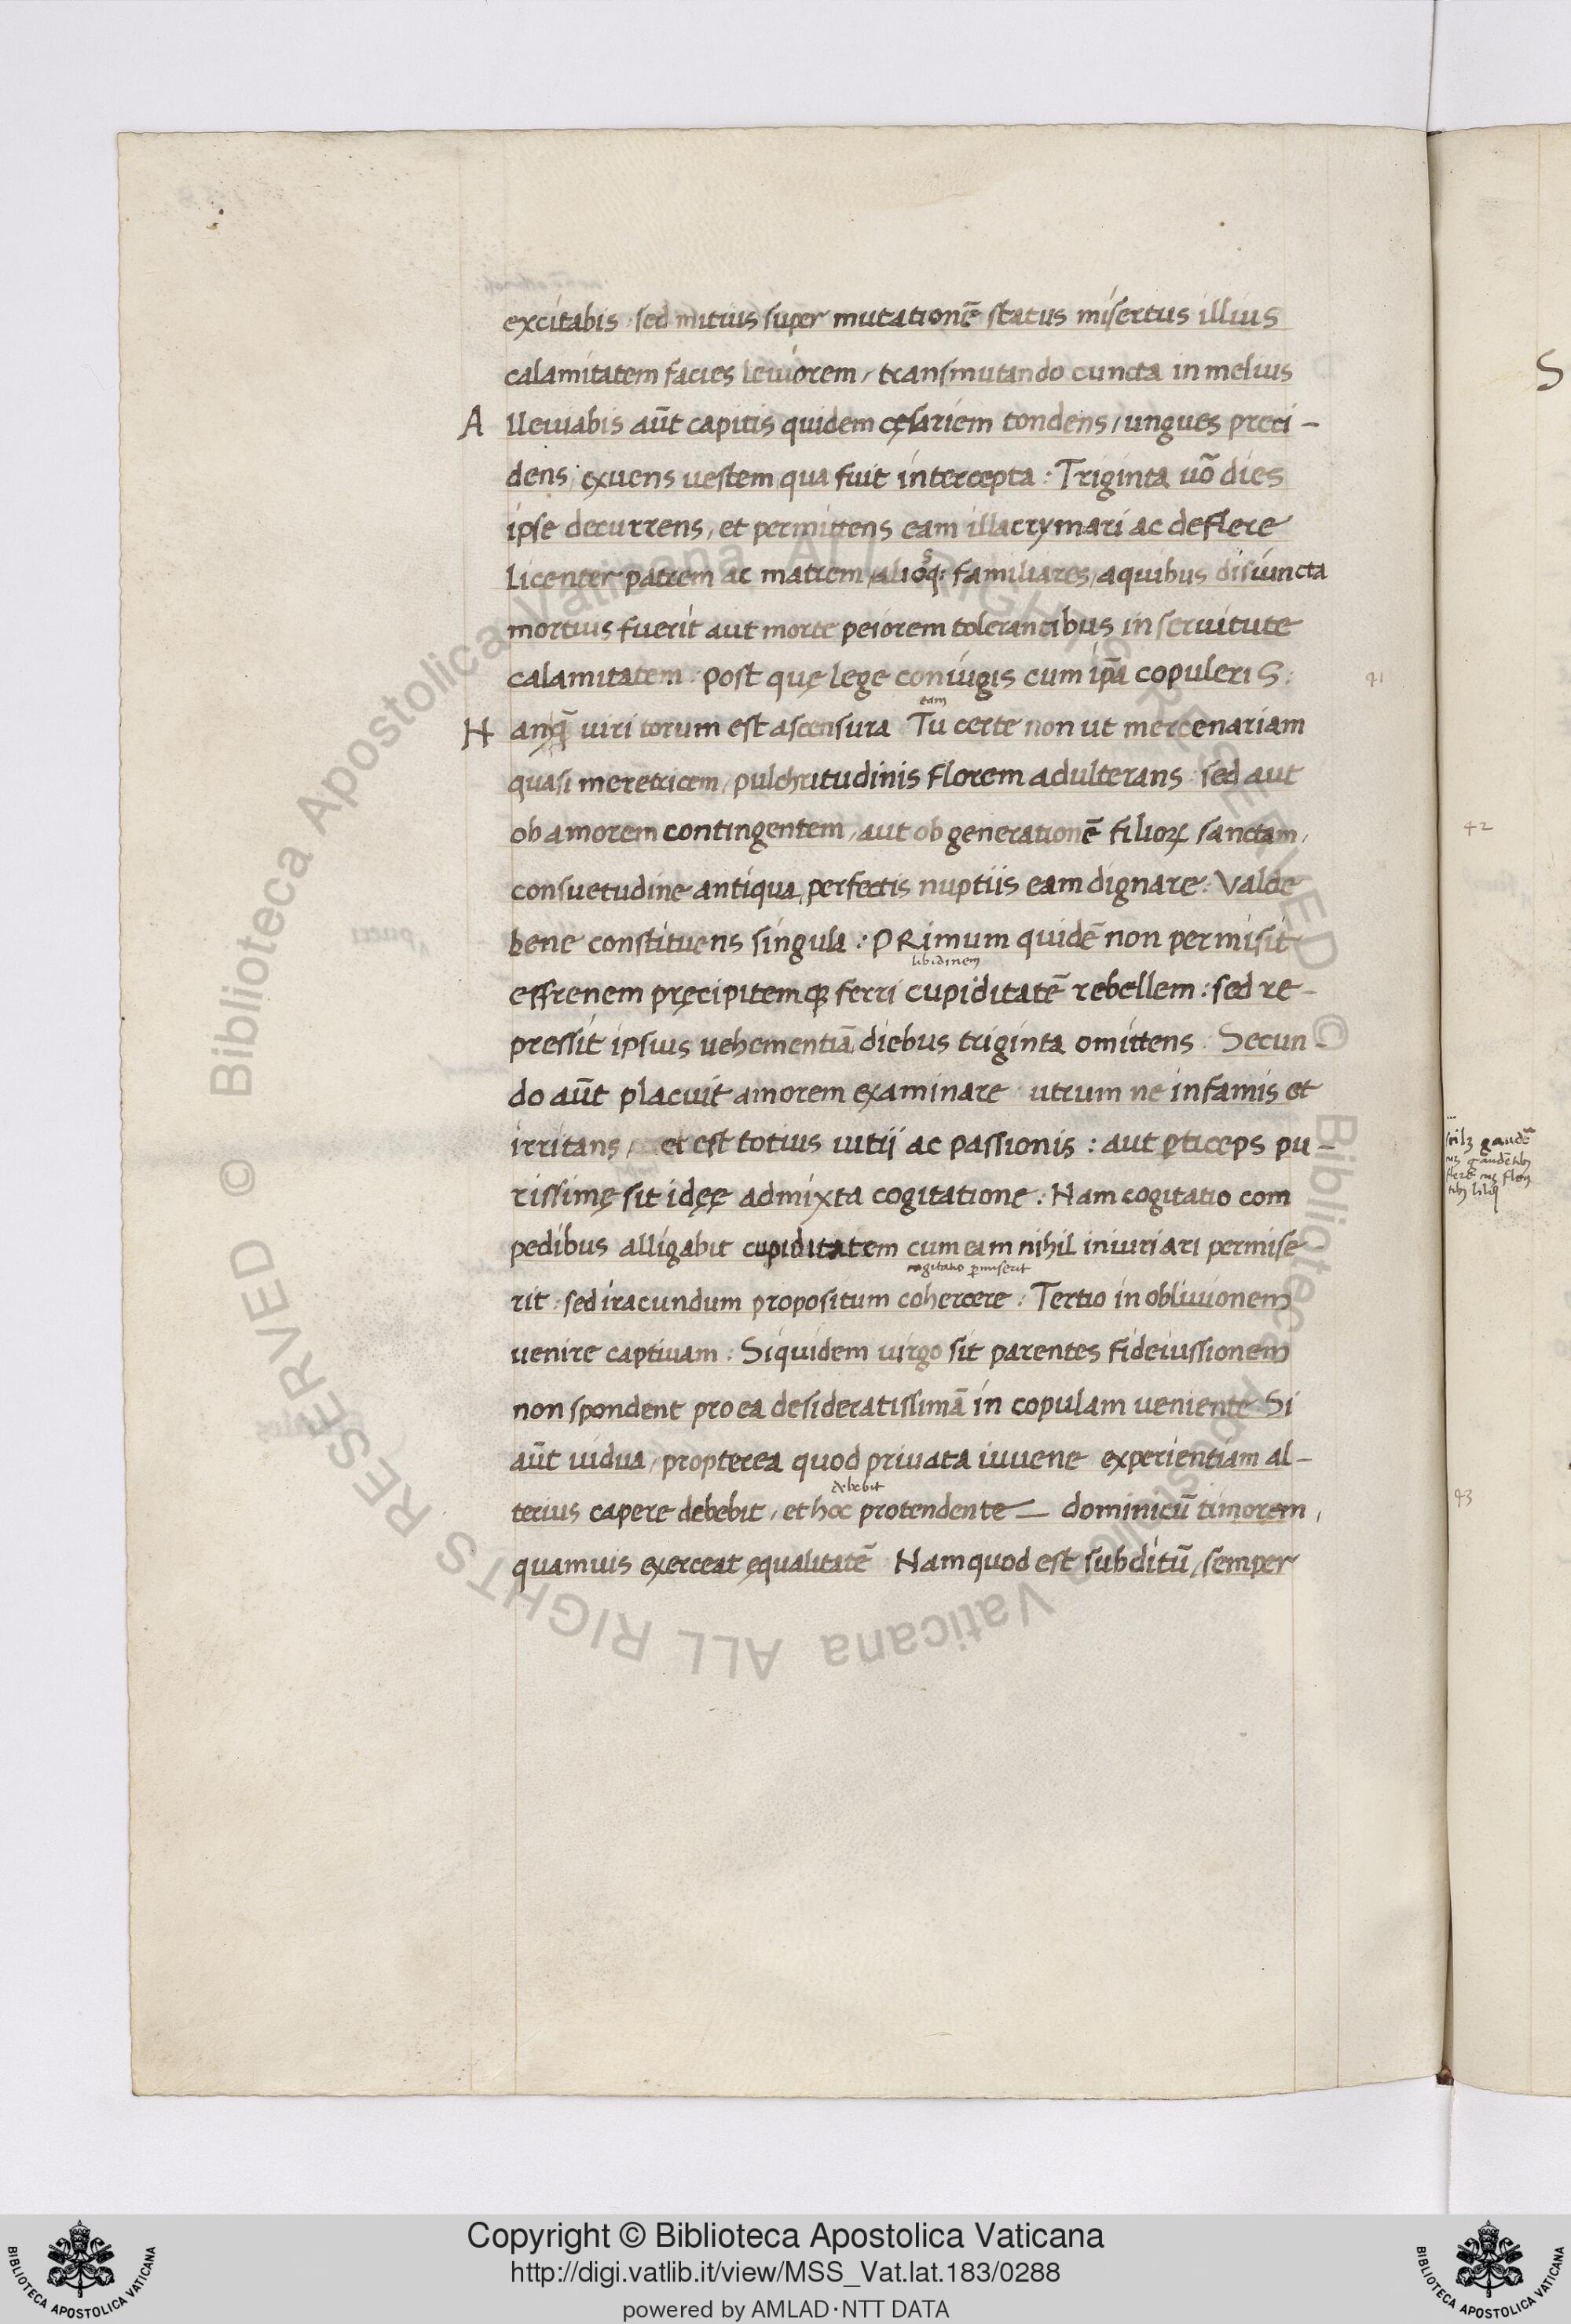 excitabis : sed mitius super mutationē status misertus illius
calamitatem facies leuiorem, transmutando cuncta in melius
A lleuiabis aūt capitis quidem cęsariem tondens, ungues preci-
dens, exuens uestem, qua fuit intercepta : Triginta uō dies
ipse decurrens, et permittens eam illacrymari ac deflere
licenter patrem ac matrem, aliosq; familiares, aquibus disiuncta
mortuis fuerit aut morte peiorem tolerantibus in seruitute
calamitatem : post quę lege coniugis cum ip̄a copuleris :
41
eam
H anq̄ uiri torum est ascensura Tu certe non ut mercenariam
quasi meretricem, pulchritudinis florem adulterans : sed aut
ob amorem contingentem, aut ob generationē filioꝝ sanctam,
consuetudine antiqua, perfectis nuptiis eam dignare : Valde
bene constituens singula : PRimum quidē non permisit
libidinem
effrenem pręcipitemq; ferri cupiditatē rebellem : sed re-
pressit ipsius uehementiā diebus triginta omittens . Secun-
do aūt placuit amorem examinare utrum ne infamis et
irritans, et est totius uitij ac passionis : aut ꝑticeps pu-
rissimę sit idęę admixta cogitatione : Nam cogitatio com
pedibus alligabit cupiditatem cum eam nihil iniuriari permise
cogitatio ꝑmiserit
rit : sed iracundum propositum cohercere : Tertio in obliuionem
uenire captiuam : Siquidem uirgo sit parentes fideiussionem
non spondent pro ea desideratissimā in copulam ueniente Si
aūt uidua, propterea quod priuata iuuene experientiam al-
debebit
terius capere debebit, et hoc protendente — dominicū timorem,
quamuis exerceat ęqualitatē Nam quod est subditū, semper
S
42
gaudē
43
© Biblioteca Apostolica Vaticana ALL RIGHTS RESERVED © Biblioteca Apostolica Vaticana ALL RIGHTS RESERVED
Copyright © Biblioteca Apostolica Vaticana
http://digi.vatlib.it/view/MSS_Vat.lat.183/0288
powered by AMLAD·NTT DATA
BIBLIOTECA APOSTOLICA VATICANA
BIBLIOTECA APOSTOLICA VATICANA